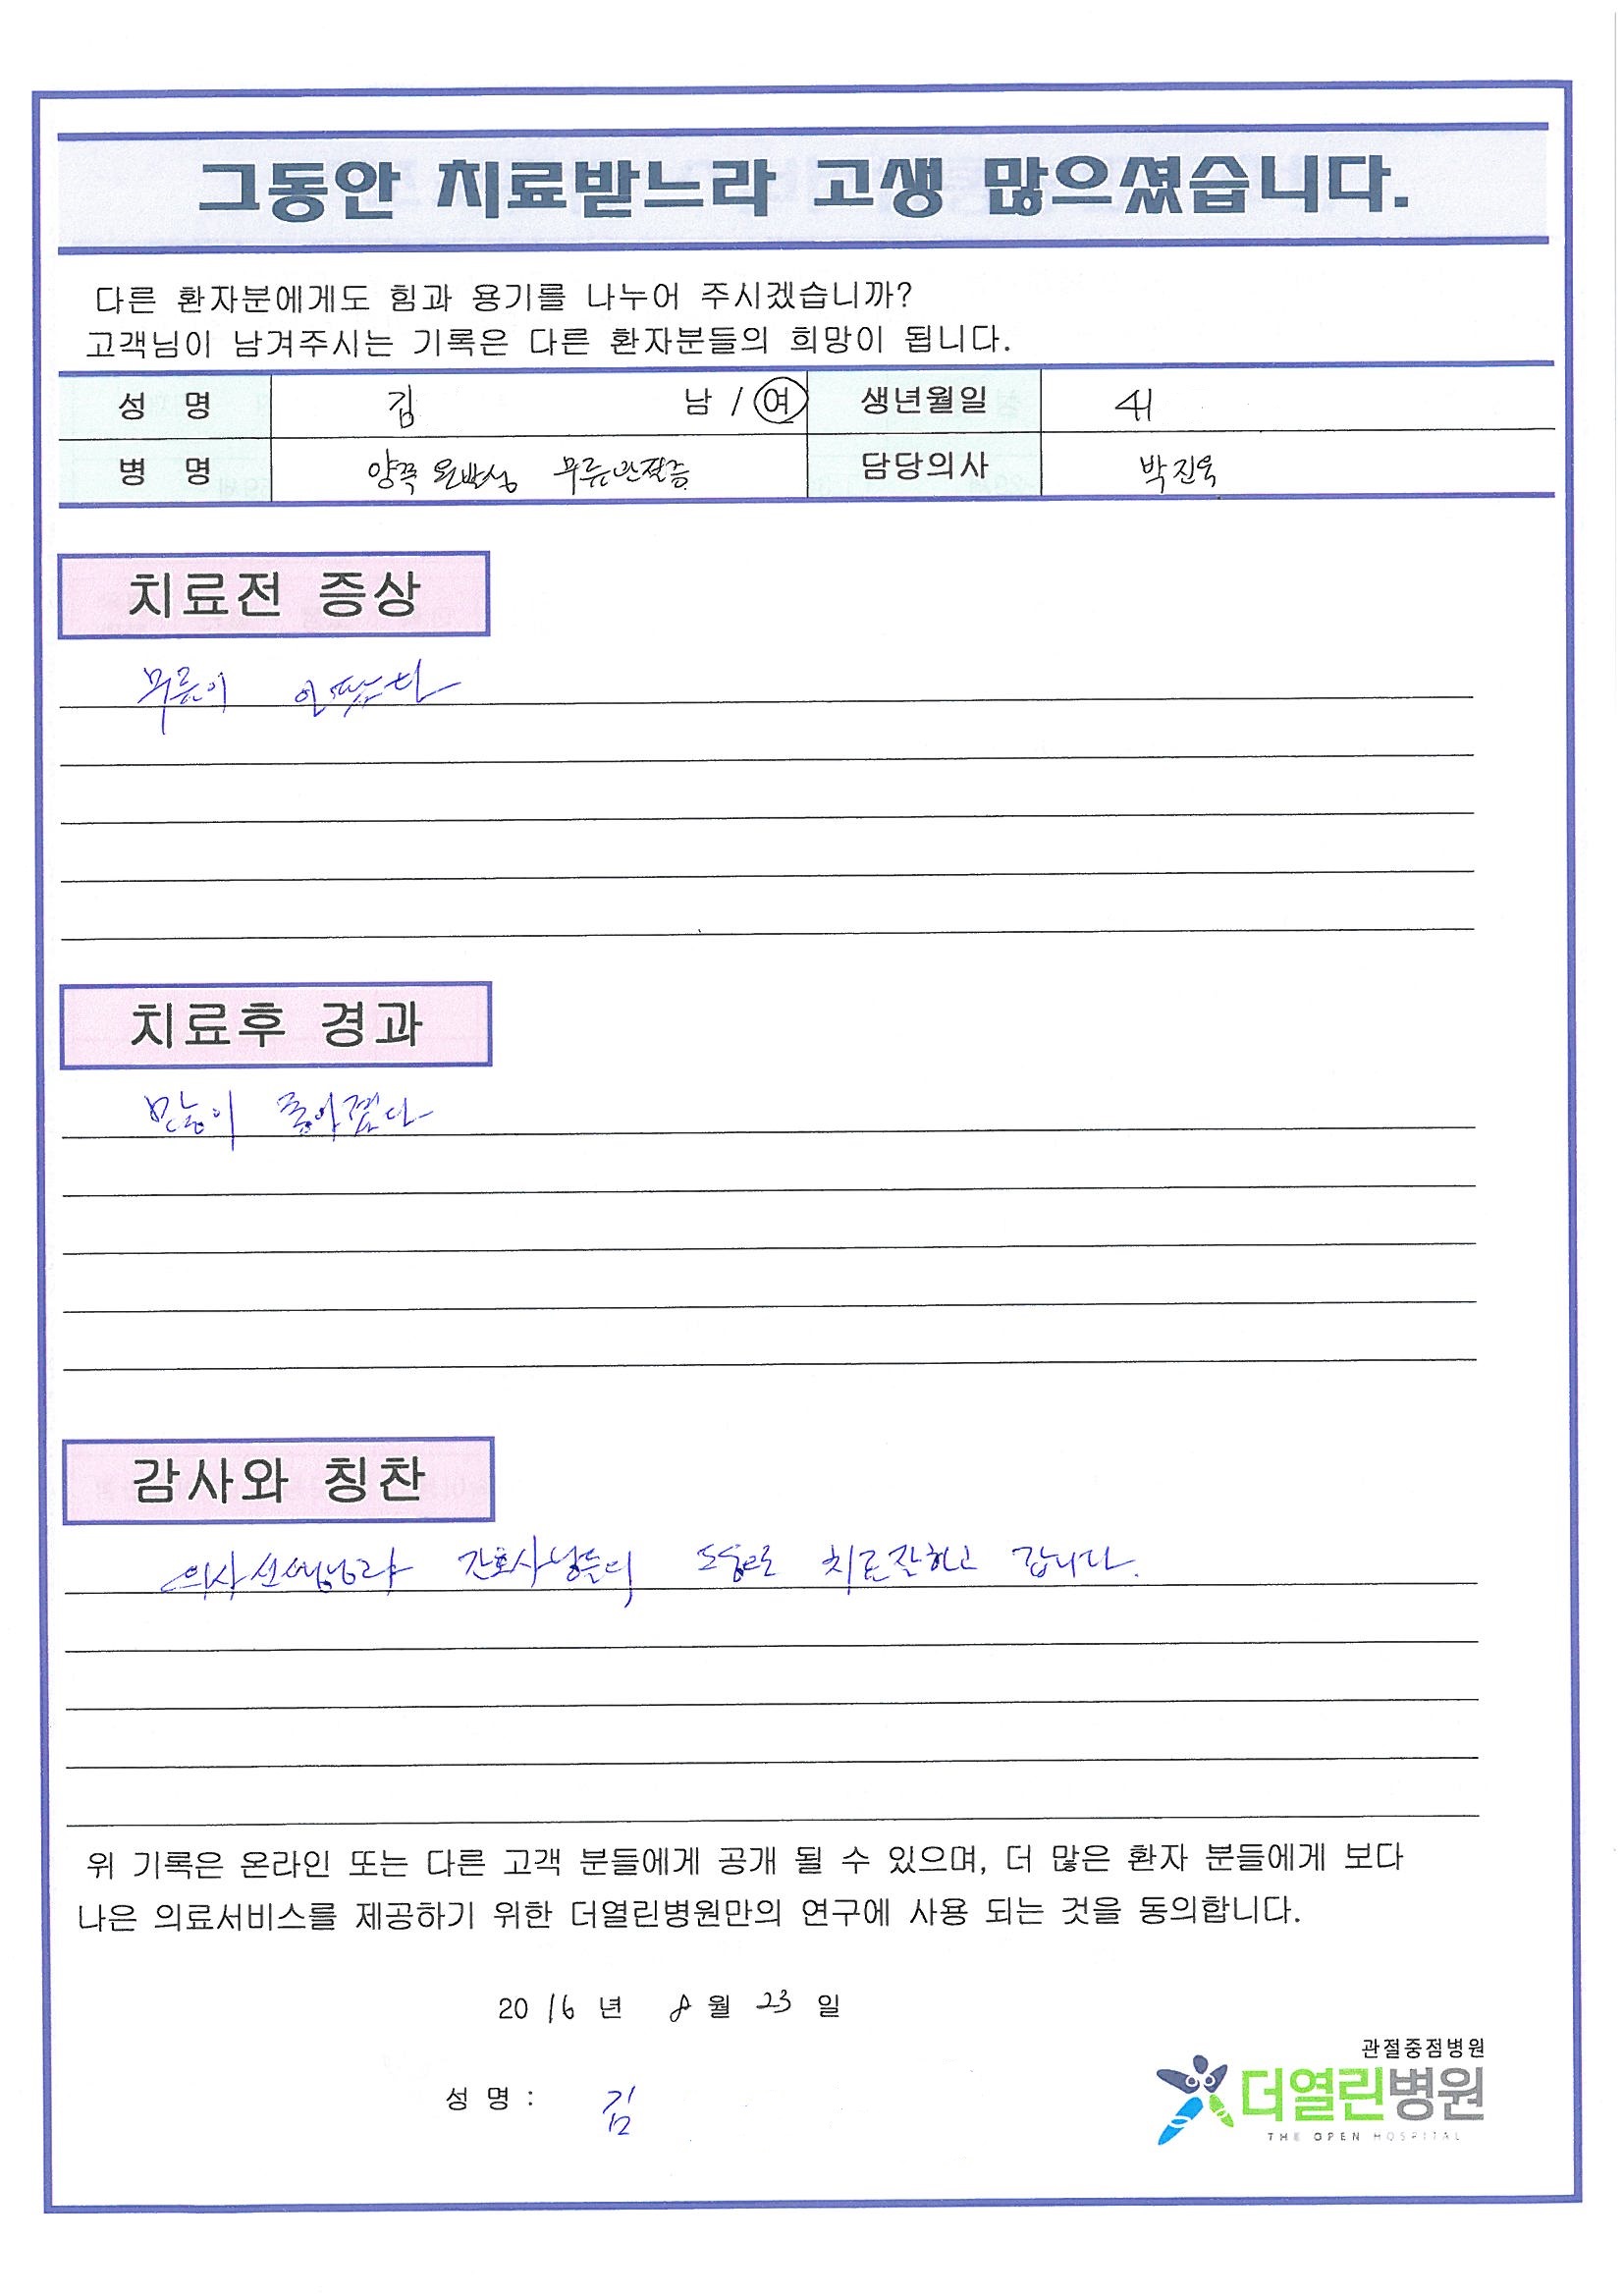 그동안 치료받느라 고생 많으셨습니다.
다른 환자분에게도 힘과 용기를 나누어 주시겠습니까?
고객님이 남겨주시는 기록은 다른 환자분들의 희망이 됩니다.
성 명 김 남 / 여 생년월일 41
병 명 양쪽 원발성 무릎관절증 담당의사 박진욱
치료전 증상
무릎이 아팠다
치료후 경과
많이 좋아졌다
감사와 칭찬
의사선생님과 간호사님들의 도움으로 치료잘하고 갑니다.
위 기록은 온라인 또는 다른 고객 분들에게 공개 될 수 있으며, 더 많은 환자 분들에게 보다
나은 의료서비스를 제공하기 위한 더열린병원만의 연구에 사용 되는 것을 동의합니다.
2016 년 8 월 23 일
관절중점병원
더열린병원
THE OPEN HOSPITAL
성 명 : 김